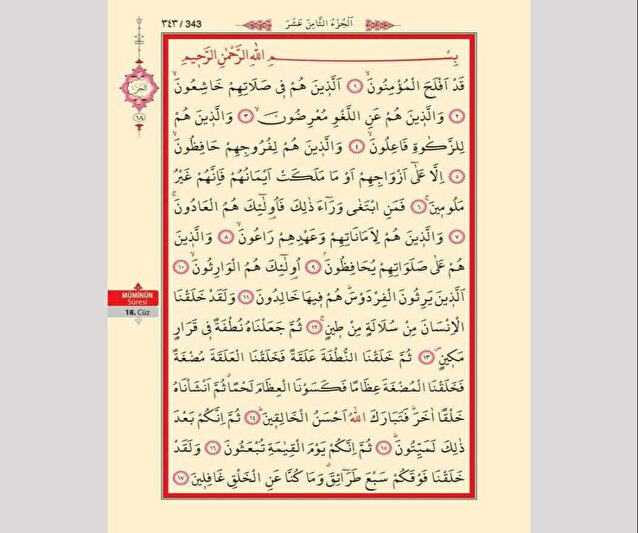 ٣٤٣ / 343
اَلْجُزْءُ الثَّامِنَ عَشَرَ
بِسْمِ اللّٰهِ الرَّحْمٰنِ الرَّحِيمِ
قَدْ اَفْلَحَ الْمُؤْمِنُونَۙ ﴿١﴾ اَلَّذِينَ هُمْ فِى صَلَاتِهِمْ خَاشِعُونَۙ
﴿٢﴾ وَالَّذِينَ هُمْ عَنِ اللَّغْوِ مُعْرِضُونَۙ ﴿٣﴾ وَالَّذِينَ هُمْ
لِلزَّكٰوةِ فَاعِلُونَۙ ﴿٤﴾ وَالَّذِينَ هُمْ لِفُرُوجِهِمْ حَافِظُونَۙ
﴿٥﴾ اِلَّا عَلٰٓى اَزْوَاجِهِمْ اَوْ مَا مَلَكَتْ اَيْمَانُهُمْ فَاِنَّهُمْ غَيْرُ
مَلُومِينَۚ ﴿٦﴾ فَمَنِ ابْتَغٰى وَرَٓاءَ ذٰلِكَ فَاُو۬لٰٓئِكَ هُمُ الْعَادُونَۚ
﴿٧﴾ وَالَّذِينَ هُمْ لِاَمَانَاتِهِمْ وَعَهْدِهِمْ رَاعُونَۙ ﴿٨﴾ وَالَّذِينَ
هُمْ عَلٰى صَلَوَاتِهِمْ يُحَافِظُونَۢ ﴿٩﴾ اُو۬لٰٓئِكَ هُمُ الْوَارِثُونَۙ ﴿١٠﴾
اَلَّذِينَ يَرِثُونَ الْفِرْدَوْسَۜ هُمْ فِيهَا خَالِدُونَ ﴿١١﴾ وَلَقَدْ خَلَقْنَا
الْاِنْسَانَ مِنْ سُلَالَةٍ مِنْ طِينٍۚ ﴿١٢﴾ ثُمَّ جَعَلْنَاهُ نُطْفَةً فِى قَرَارٍ
مَكِينٍۖ ﴿١٣﴾ ثُمَّ خَلَقْنَا النُّطْفَةَ عَلَقَةً فَخَلَقْنَا الْعَلَقَةَ مُضْغَةً
فَخَلَقْنَا الْمُضْغَةَ عِظَامًا فَكَسَوْنَا الْعِظَامَ لَحْمًاۗ ثُمَّ اَنْشَأْنَاهُ
خَلْقًا اٰخَرَۜ فَتَبَارَكَ اللّٰهُ اَحْسَنُ الْخَالِقِينَۜ ﴿١٤﴾ ثُمَّ اِنَّكُمْ بَعْدَ
ذٰلِكَ لَمَيِّتُونَۜ ﴿١٥﴾ ثُمَّ اِنَّكُمْ يَوْمَ الْقِيٰمَةِ تُبْعَثُونَ ﴿١٦﴾ وَلَقَدْ
خَلَقْنَا فَوْقَكُمْ سَبْعَ طَرَٓائِقَۗ وَمَا كُنَّا عَنِ الْخَلْقِ غَافِلِينَ ﴿١٧﴾
الجزء
١٨
MÜMİNÛN
Sûresi
18. Cüz